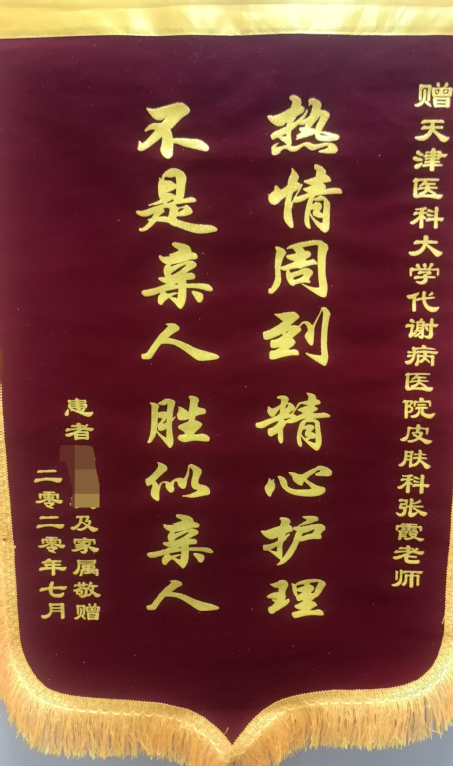 赠天津医科大学代谢病医院皮肤科张霞老师
热情周到 精心护理
不是亲人 胜似亲人
患者
及家属敬赠
二零二零年七月